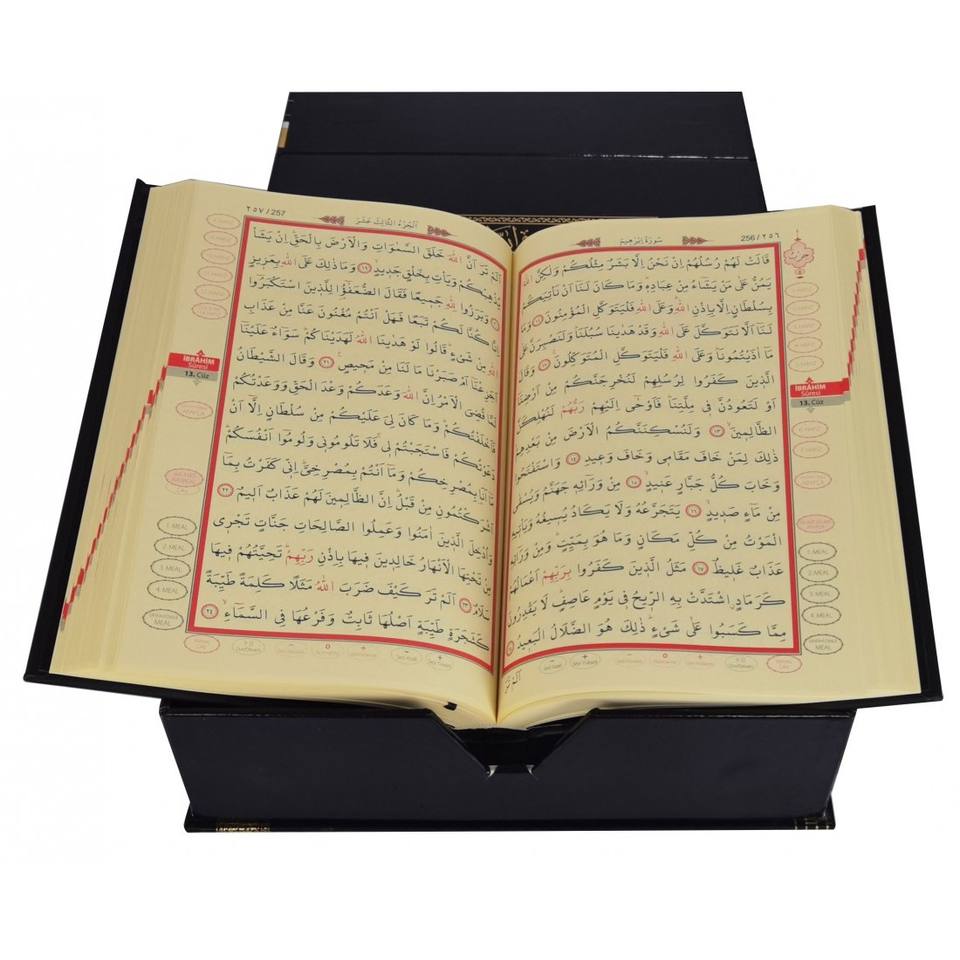 سُورَةُ اِبْرٰهِيمَ
256 / ٢٥٦
قَالَتْ لَهُمْ رُسُلُهُمْ اِنْ نَحْنُ اِلَّا بَشَرٌ مِثْلُكُمْ وَلٰكِنَّ اللّٰهَ
يَمُنُّ عَلٰى مَنْ يَشَٓاءُ مِنْ عِبَادِهٖ وَمَا كَانَ لَنَٓا اَنْ نَأْتِيَكُمْ
بِسُلْطَانٍ اِلَّا بِاِذْنِ اللّٰهِ وَعَلَى اللّٰهِ فَلْيَتَوَكَّلِ الْمُؤْمِنُونَ ١١ وَمَا
لَنَٓا اَلَّا نَتَوَكَّلَ عَلَى اللّٰهِ وَقَدْ هَدٰينَا سُبُلَنَا وَلَنَصْبِرَنَّ عَلٰى
مَٓا اٰذَيْتُمُونَا وَعَلَى اللّٰهِ فَلْيَتَوَكَّلِ الْمُتَوَكِّلُونَ ١٢ وَقَالَ
الَّذِينَ كَفَرُوا لِرُسُلِهِمْ لَنُخْرِجَنَّكُمْ مِنْ اَرْضِنَٓا
اَوْ لَتَعُودُنَّ فِى مِلَّتِنَا فَاَوْحٰٓى اِلَيْهِمْ رَبُّهُمْ لَنُهْلِكَنَّ
الظَّالِمِينَ ١٣ وَلَنُسْكِنَنَّكُمُ الْاَرْضَ مِنْ بَعْدِهِمْ
ذٰلِكَ لِمَنْ خَافَ مَقَامِى وَخَافَ وَعِيدِ ١٤ وَاسْتَفْتَحُوا
وَخَابَ كُلُّ جَبَّارٍ عَنِيدٍ ١٥ مِنْ وَرَٓائِهٖ جَهَنَّمُ وَيُسْقٰى
مِنْ مَٓاءٍ صَدِيدٍ ١٦ يَتَجَرَّعُهُ وَلَا يَكَادُ يُسِيغُهُ وَيَأْتِيهِ
الْمَوْتُ مِنْ كُلِّ مَكَانٍ وَمَا هُوَ بِمَيِّتٍ وَمِنْ وَرَٓائِهٖ
عَذَابٌ غَلِيظٌ ١٧ مَثَلُ الَّذِينَ كَفَرُوا بِرَبِّهِمْ اَعْمَالُهُمْ
كَرَمَادٍ اشْتَدَّتْ بِهِ الرِّيحُ فِى يَوْمٍ عَاصِفٍ لَا يَقْدِرُونَ
مِمَّا كَسَبُوا عَلٰى شَىْءٍ ذٰلِكَ هُوَ الضَّلَالُ الْبَعِيدُ ١٨
اَلَمْ تَرَ
İBRÂHİM
Sûresi
13. Cüz
1. MEAL
2. MEAL
3. MEAL
4. MEAL
MEAL
٢٥٧ / 257
اَلْجُزْءُ الثَّالِثَ عَشَرَ
اَلَمْ تَرَ اَنَّ اللّٰهَ خَلَقَ السَّمٰوَاتِ وَالْاَرْضَ بِالْحَقِّ اِنْ يَشَأْ
يُذْهِبْكُمْ وَيَأْتِ بِخَلْقٍ جَدِيدٍ ١٩ وَمَا ذٰلِكَ عَلَى اللّٰهِ بِعَزِيزٍ
٢٠ وَبَرَزُوا لِلّٰهِ جَمِيعًا فَقَالَ الضُّعَفٰٓؤُا لِلَّذِينَ اسْتَكْبَرُٓوا
اِنَّا كُنَّا لَكُمْ تَبَعًا فَهَلْ اَنْتُمْ مُغْنُونَ عَنَّا مِنْ عَذَابِ
اللّٰهِ مِنْ شَىْءٍ قَالُوا لَوْ هَدٰينَا اللّٰهُ لَهَدَيْنَاكُمْ سَوَٓاءٌ عَلَيْنَٓا
اَجَزِعْنَٓا اَمْ صَبَرْنَا مَا لَنَا مِنْ مَحِيصٍ ٢١ وَقَالَ الشَّيْطَانُ
لَمَّا قُضِىَ الْاَمْرُ اِنَّ اللّٰهَ وَعَدَكُمْ وَعْدَ الْحَقِّ وَوَعَدْتُكُمْ
فَاَخْلَفْتُكُمْ وَمَا كَانَ لِىَ عَلَيْكُمْ مِنْ سُلْطَانٍ اِلَّٓا اَنْ
دَعَوْتُكُمْ فَاسْتَجَبْتُمْ لِى فَلَا تَلُومُونِى وَلُومُٓوا اَنْفُسَكُمْ
مَٓا اَنَا بِمُصْرِخِكُمْ وَمَٓا اَنْتُمْ بِمُصْرِخِىَّ اِنِّى كَفَرْتُ بِمَٓا
اَشْرَكْتُمُونِ مِنْ قَبْلُ اِنَّ الظَّالِمِينَ لَهُمْ عَذَابٌ اَلِيمٌ ٢٢
وَاُدْخِلَ الَّذِينَ اٰمَنُوا وَعَمِلُوا الصَّالِحَاتِ جَنَّاتٍ تَجْرِى
مِنْ تَحْتِهَا الْاَنْهَارُ خَالِدِينَ فِيهَا بِاِذْنِ رَبِّهِمْ تَحِيَّتُهُمْ فِيهَا
سَلَامٌ ٢٣ اَلَمْ تَرَ كَيْفَ ضَرَبَ اللّٰهُ مَثَلًا كَلِمَةً طَيِّبَةً
كَشَجَرَةٍ طَيِّبَةٍ اَصْلُهَا ثَابِتٌ وَفَرْعُهَا فِى السَّمَٓاءِ ٢٤
İBRÂHİM
Sûresi
13. Cüz
1. MEAL
2. MEAL
3. MEAL
4. MEAL
MEAL